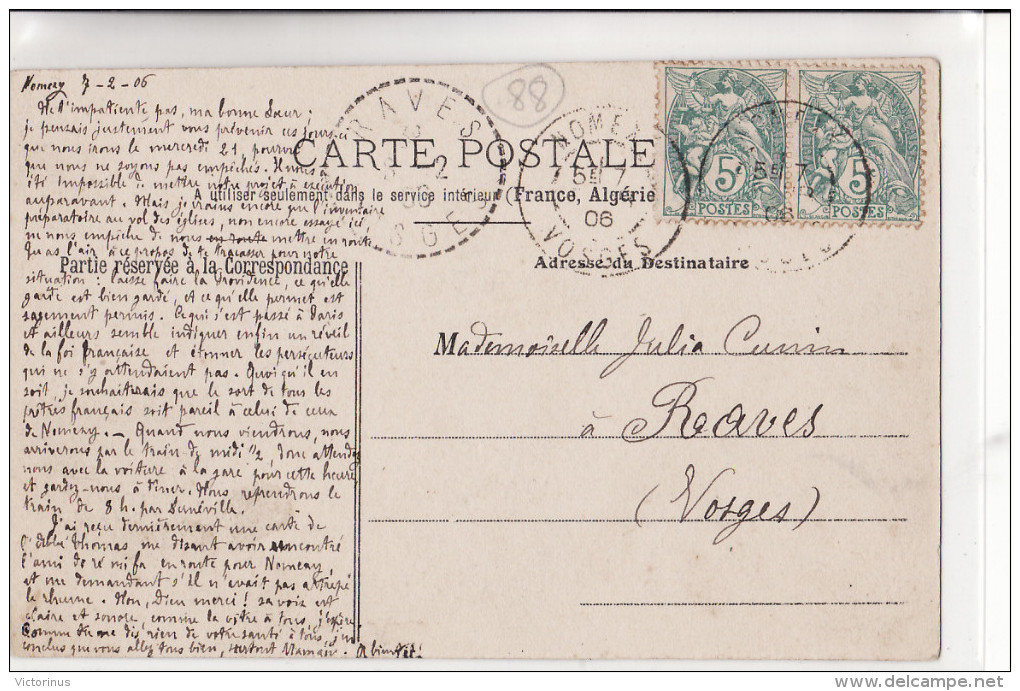 Nomexy 7-2-06
Ne t'impatiente pas, ma bonne Sœur ;
je pensais justement vous prévenir ces jours-ci
que nous irons le mercredi 21 pourvu
que nous ne soyons pas empêchés. Il nous a
été impossible de mettre notre projet à exécution
auparavant. Mais je crains encore que l'inventaire
préparatoire au vol des églises, non encore essayé ici,
ne nous empêche de nous en route mettre en route.
Tu as l'air à ce propos de te tracasser pour notre
situation : laisse faire la Providence, ce qu'elle
garde est bien gardé, et ce qu'elle permet est
sagement permis. Ce qui s'est passé à Paris
et ailleurs semble indiquer enfin un réveil
de la foi française et étonner les persécuteurs
qui ne s'y attendaient pas. Quoi qu'il en
soit, je souhaiterais que le sort de tous les
prêtres français soit pareil à celui de ceux
de Nomexy. — Quand nous viendrons, nous
arriverons par le train de midi 1/2, donc attendez
nous avec la voiture à la gare pour cette heure
et gardez-nous à dîner. Nous reprendrons le
train de 8 h. par Lunéville.
J'ai reçu dernièrement une carte de
l'abbé Thomas me disant avoir rencontré
l'ami do ré mi fa en route pour Nomexy,
et me demandant s'il n'avait pas attrapé
le rhume. Non, Dieu merci ! sa voix est
claire et sonore, comme la vôtre à tous, j'espère.
Comme tu ne dis rien de votre santé à tous, j'en
conclus que vous allez tous bien, surtout Maman. A bientôt !
88
CARTE POSTALE
A utiliser seulement dans le service intérieur (France, Algérie
Partie réservée à la Correspondance
Adresse du Destinataire
Mademoiselle Julia Cunin
à
Raves
(Vosges)
RAVES
8
2
06
VOSGES
NOMEXY
5E 7
2
06
VOSGES
5E 7
06
5
POSTES
5
POSTES
Victorinus
www.delcampe.net